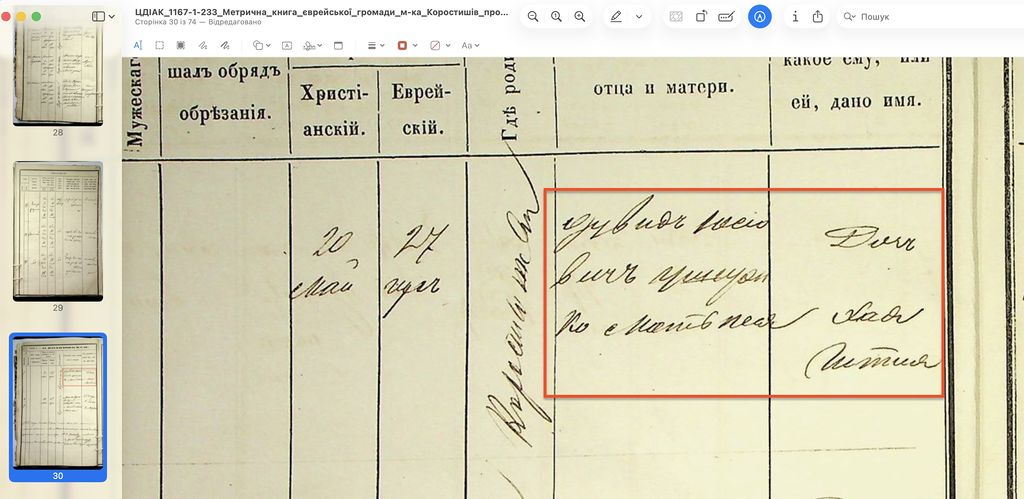 ЦДІАК_1167-1-233_Метрична_книга_єврейської_громади_м-ка_Коростишів_про...
Сторінка 30 із 74 — Відредаговано
Пошук
28
29
30
Мужескаг
шалъ обрядъ
обрѣзанія.
Христі-
анскій.
Еврей-
скій.
Гдѣ роди
отца и матери.
какое ему, или
ей, дано имя.
20
Май
27
Коростишев
Дувидъ Иосіо
вичъ
ко Мать Песя
Дочь
Хая